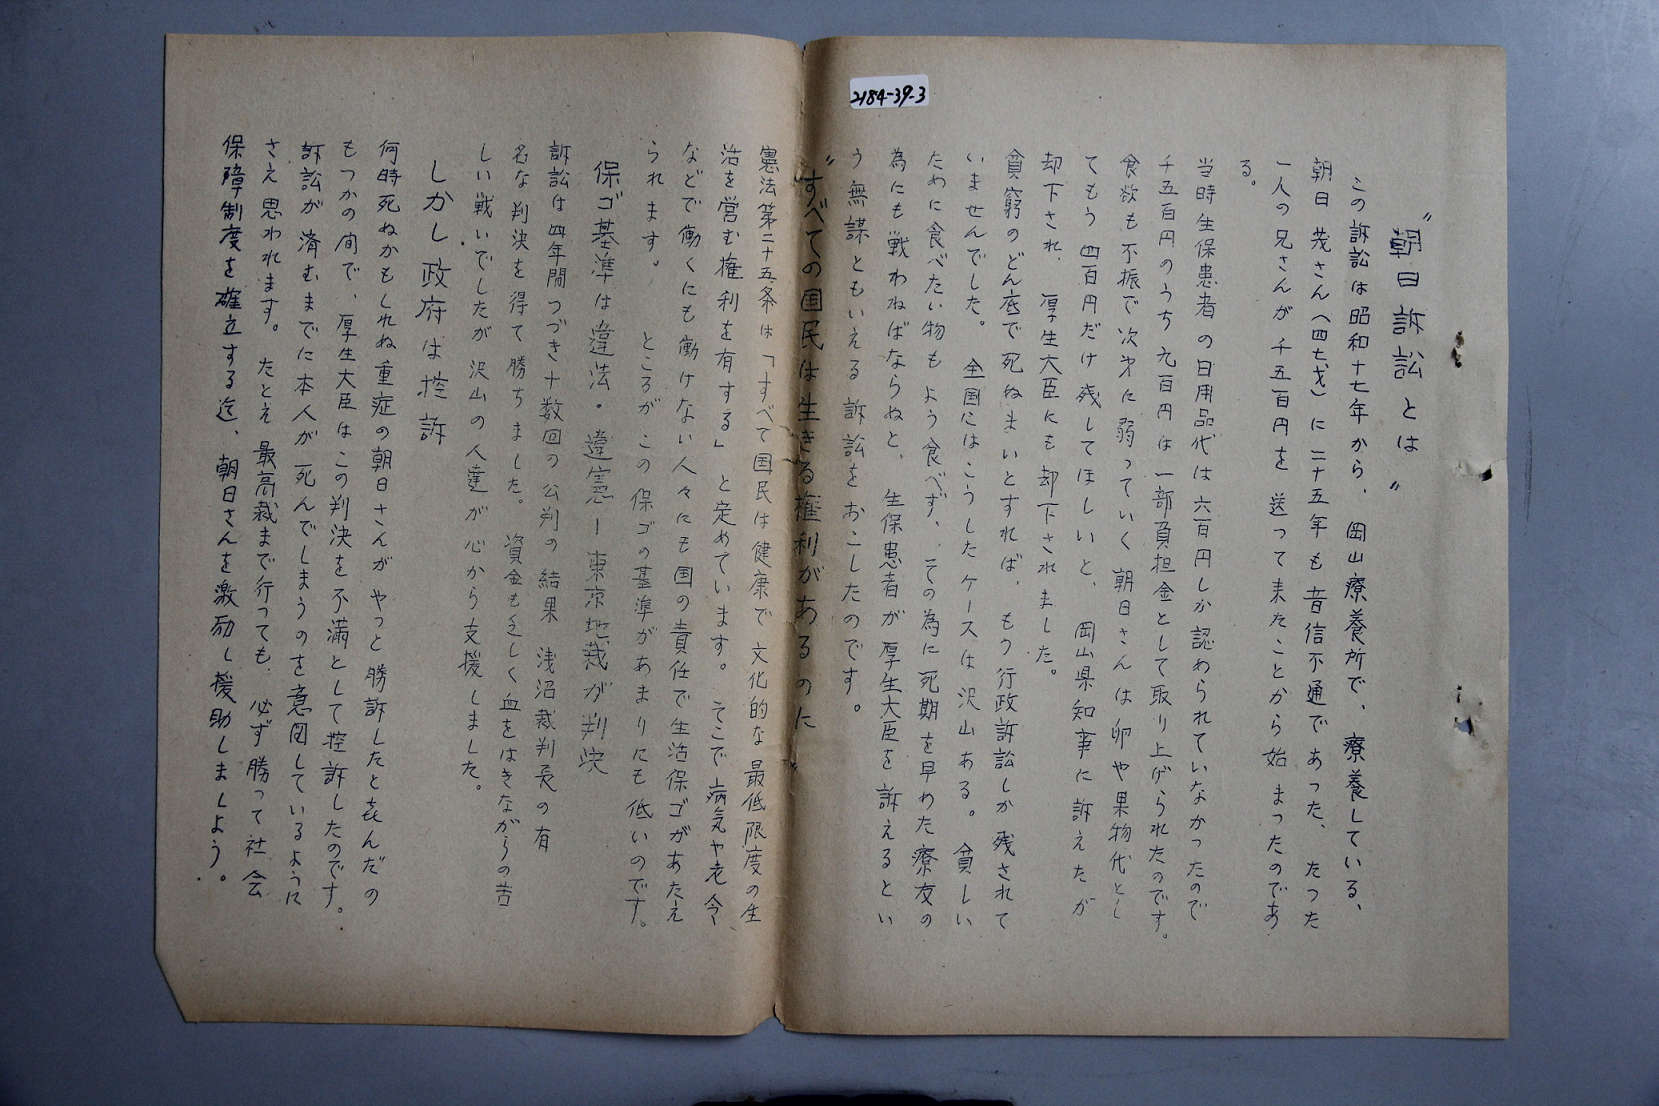 2184-39-3
"朝日訴訟とは"
この訴訟は昭和十七年から、岡山療養所で、療養している、
朝日茂さん(四七才)に二十五年も音信不通であった、たった
一人の兄さんが千五百円を送って来たことから始まったのであ
る。
当時生保患者の日用品代は六百円しか認められていなかったので
千五百円のうち九百円は一部負担金として取り上げられたのです。
食欲も不振で次才に弱っていく朝日さんは卵や果物代とし
てもう四百円だけ残してほしいと、岡山県知事に訴えたが
却下され、厚生大臣にも却下されました。
貧窮のどん底で死ぬまいとすれば、もう行政訴訟しか残されて
いませんでした。全国にはこうしたケースは沢山ある。貧しい
ために食べたい物もよう食べず、その為に死期を早めた療友の
為にも戦わねばならぬと、生保患者が厚生大臣を訴えるとい
う無謀ともいえる訴訟をおこしたのです。
"すべての国民は生きる権利があるのに
憲法第二十五条は「すべて国民は健康で文化的な最低限度の生
活を営む権利を有する」と定めています。そこで病気や老令
などで働くにも働けない人々にも国の責任で生活保ゴがあたえ
られます。ところがこの保ゴの基準があまりにも低いのです。
保ゴ基準は違法・違憲ー東京地裁が判決
訴訟は四年間つづき十数回の公判の結果浅沼裁判長の有
名な判決を得て勝ちました。資金も乏しく血をはきながらの苦
しい戦いでしたが沢山の人達が心から支援しました。
しかし政府は控訴
何時死ぬかもしれぬ重症の朝日さんがやっと勝訴したと㐂んだの
もつかの間で、厚生大臣はこの判決を不満として控訴したのです。
訴訟が済むまでに本人が死んでしまうのを意図しているように
さえ思われます。たとえ最高裁まで行っても、必ず勝って社会
保障制度を確立する迄、朝日さんを激励し援助しましょう。